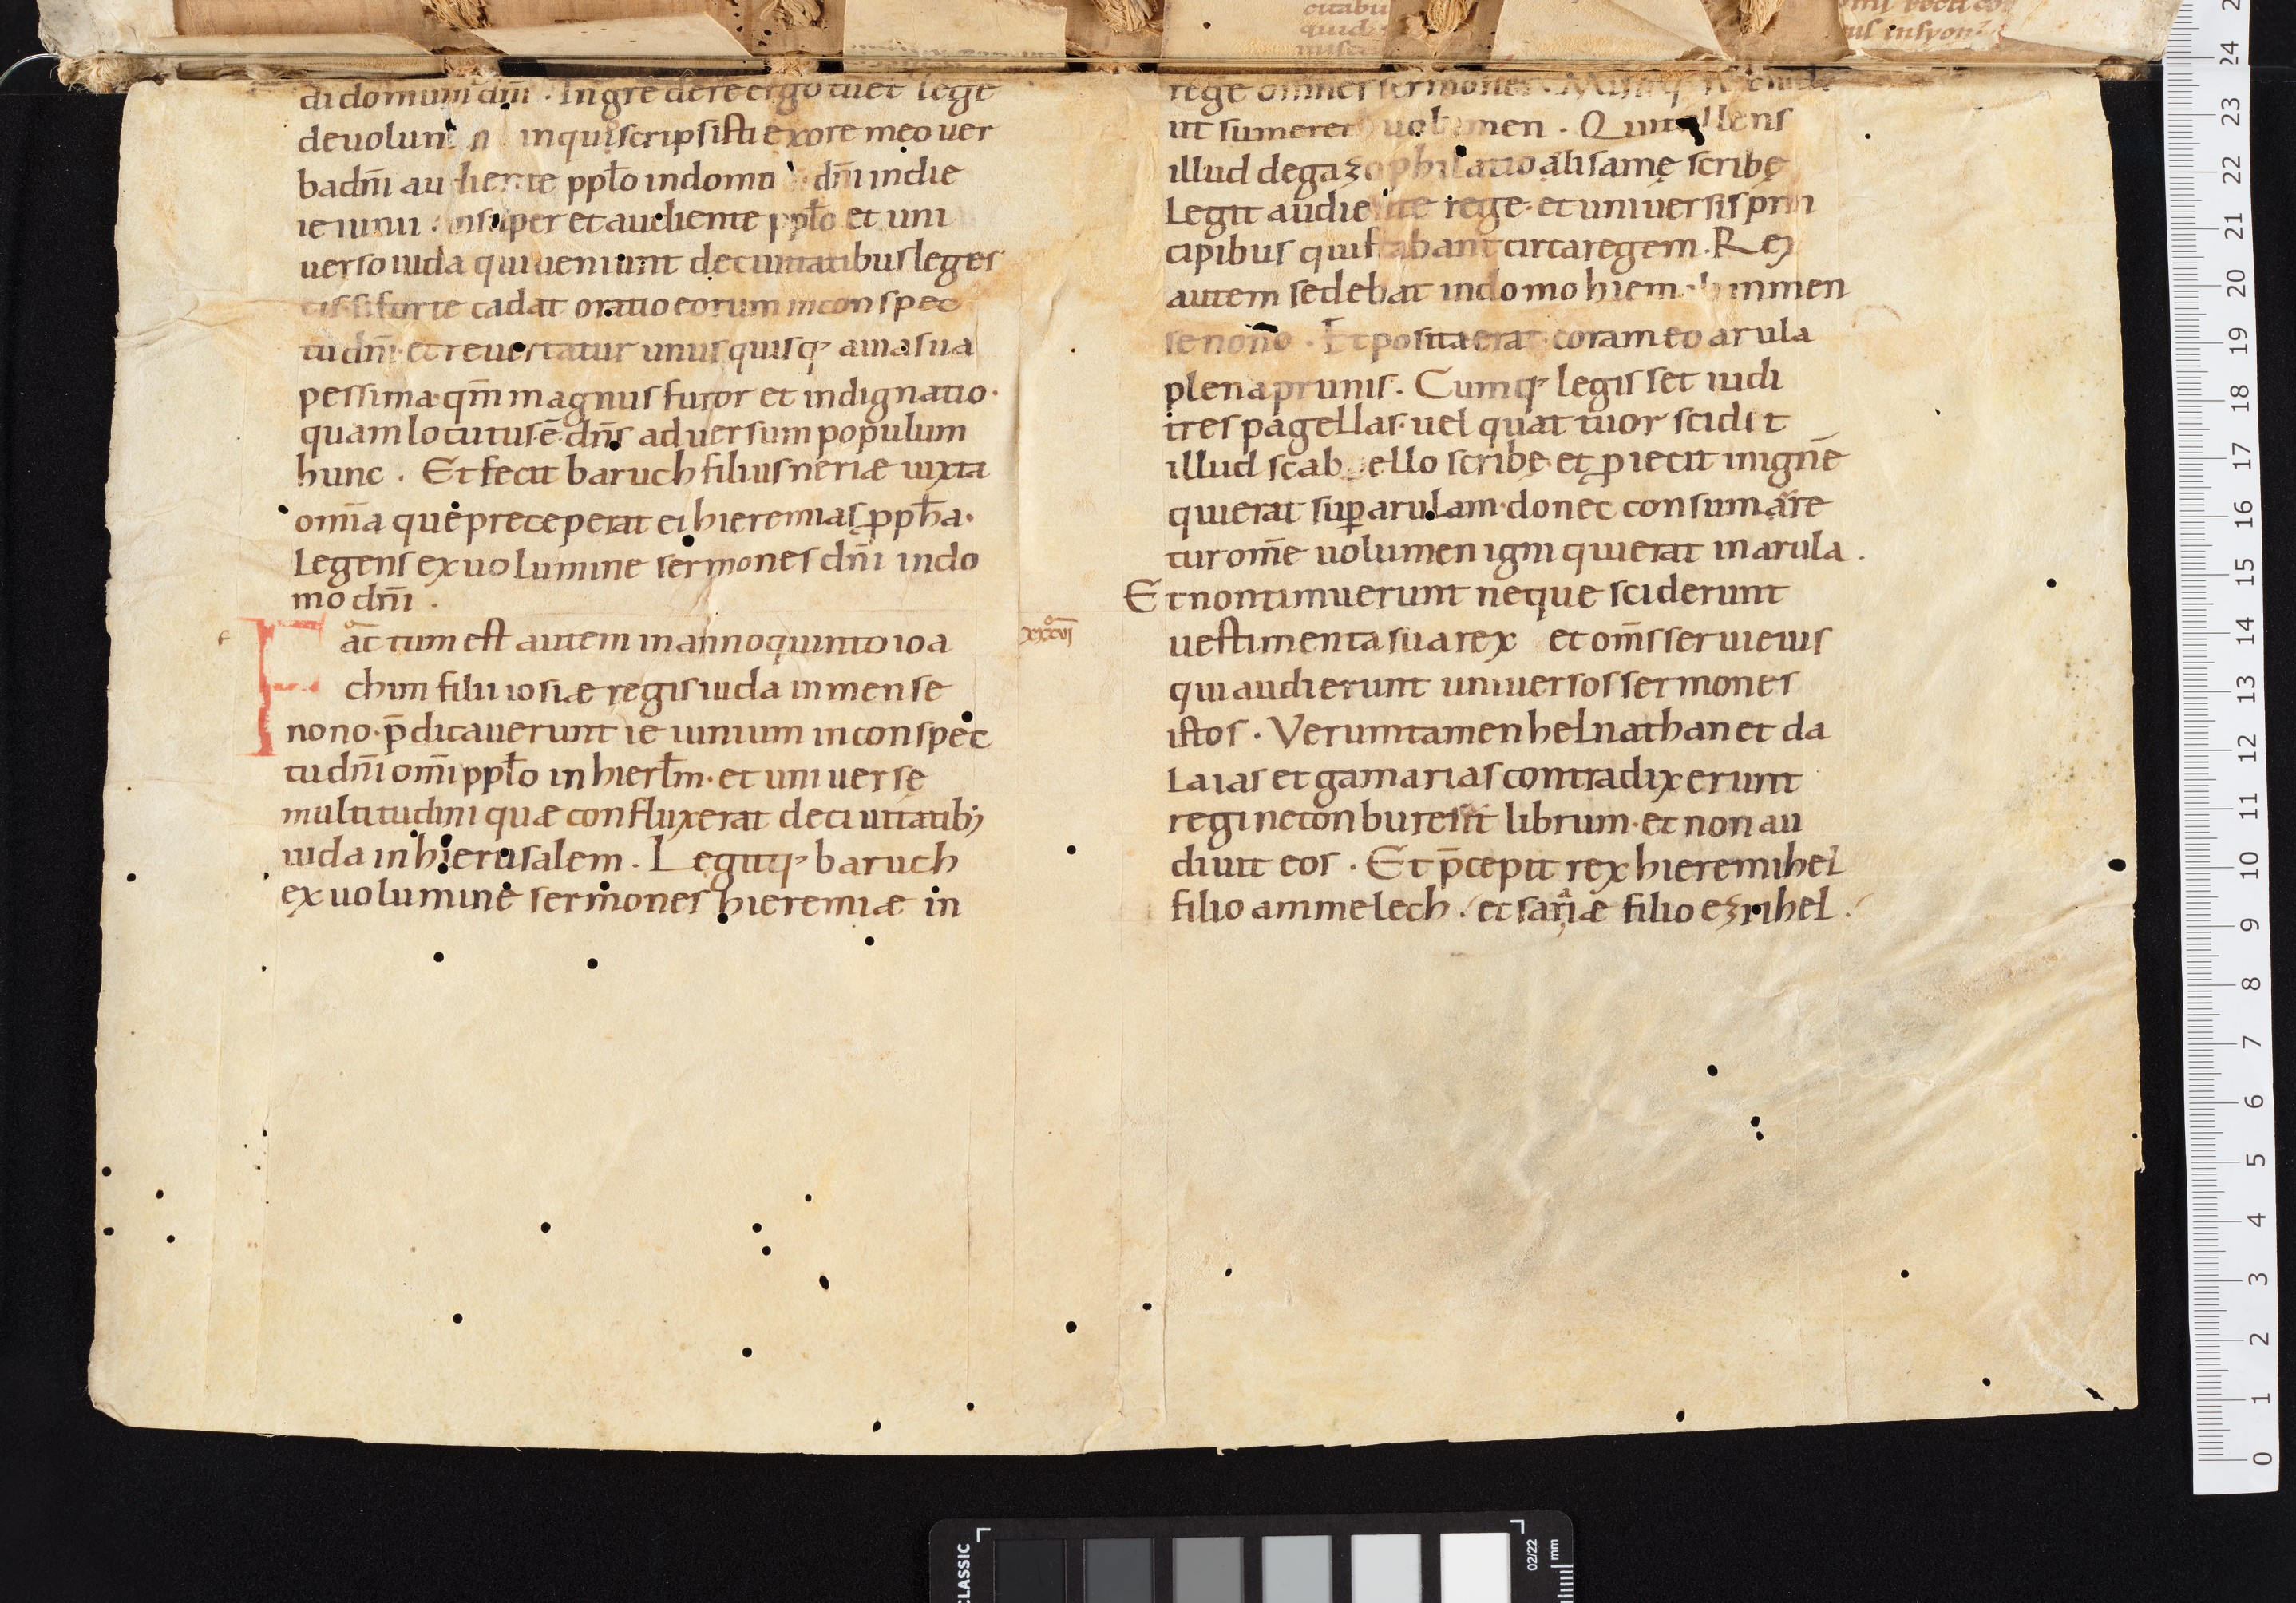 di domum dn̄i . Ingrēdere ergo tu et lege
de in qui scripsisti ex ore meo uer
ba dn̄i audiente pp̄lo in domo dn̄i in die
ieiunii . insuper et audiente pp̄lo et uni
uerso iuda qui ueniunt de ciuitatibus leges
eis. si forte cadat oratio eorum in conspec
tu dn̄i. et reuertatur unusquisq; a uia sua
pessima. qm̄ magnus furor et indignatio.
quam locutus ē dn̄s aduersum populum
hunc . Et fecit baruch filius neriæ iuxta
om̄ia que preceperat ei hieremias ꝓph̄a.
Legens ex uolumine sermones dn̄i in do
mo dn̄i .
Factum est autem in anno quinto ioa
chim filii iosiæ regis iuda in mense
nono. p̄dicauerunt ieiunium in conspec
tu dn̄i om̄i pp̄lo in hierl̄m. et uniuersę
multitudini quæ confluxerat de ciuitatib;
iuda in hierusalem . Legitq; baruch
ex uolumine sermones hieremiæ in
xxxvi
rege omnes sermones .
ut sumeret uolumen . Qui tollens
illud de gazophilatio alisamę scribę
Legit audiente rege. et uniuersis prin
cipibus qui stabant circa regem . Rex
autem sedebat in domo hiemali in men
se nono . Et posita erat coram eo arula
plena prunis . Cumq; legisset iudi
tres pagellas. uel quattuor scidit
illud scabello scribę. et ꝓiecit in ignē
qui erat suꝑ arulam. donec consumare
tur om̄e uolumen igni qui erat in arula .
Et non timuerunt neque sciderunt
uestimenta sua rex et om̄s serui eius
qui audierunt uniuersos sermones
istos . Verumtamen helnathan et da
Laias et gamarias contradixerunt
regi ne conburerent librum. et non au
diuit eos . Et p̄cepit rex hieremihel
filio ammelech . et sariæ filio ezrihel .